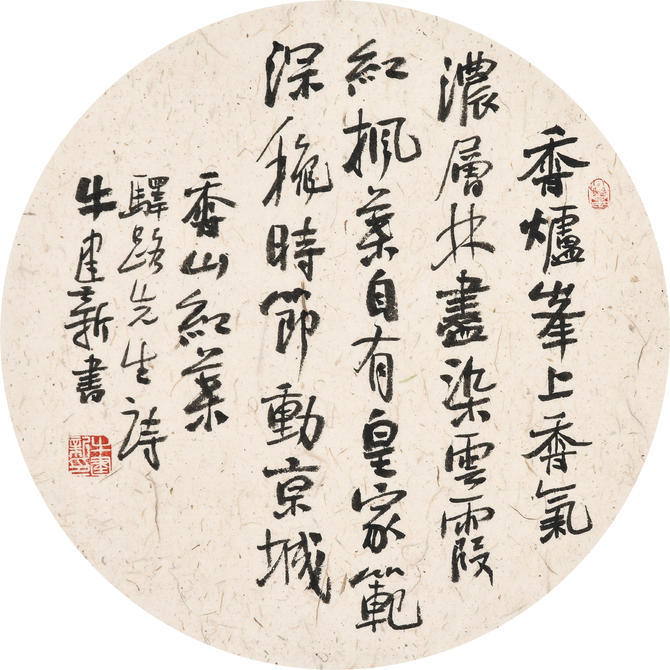 香爐峯上香氣
濃層林盡染雲霞
紅楓葉自有皇家範
深穐時節動京城
香山紅葉
驛路先生詩
牛建新書
牛建新印